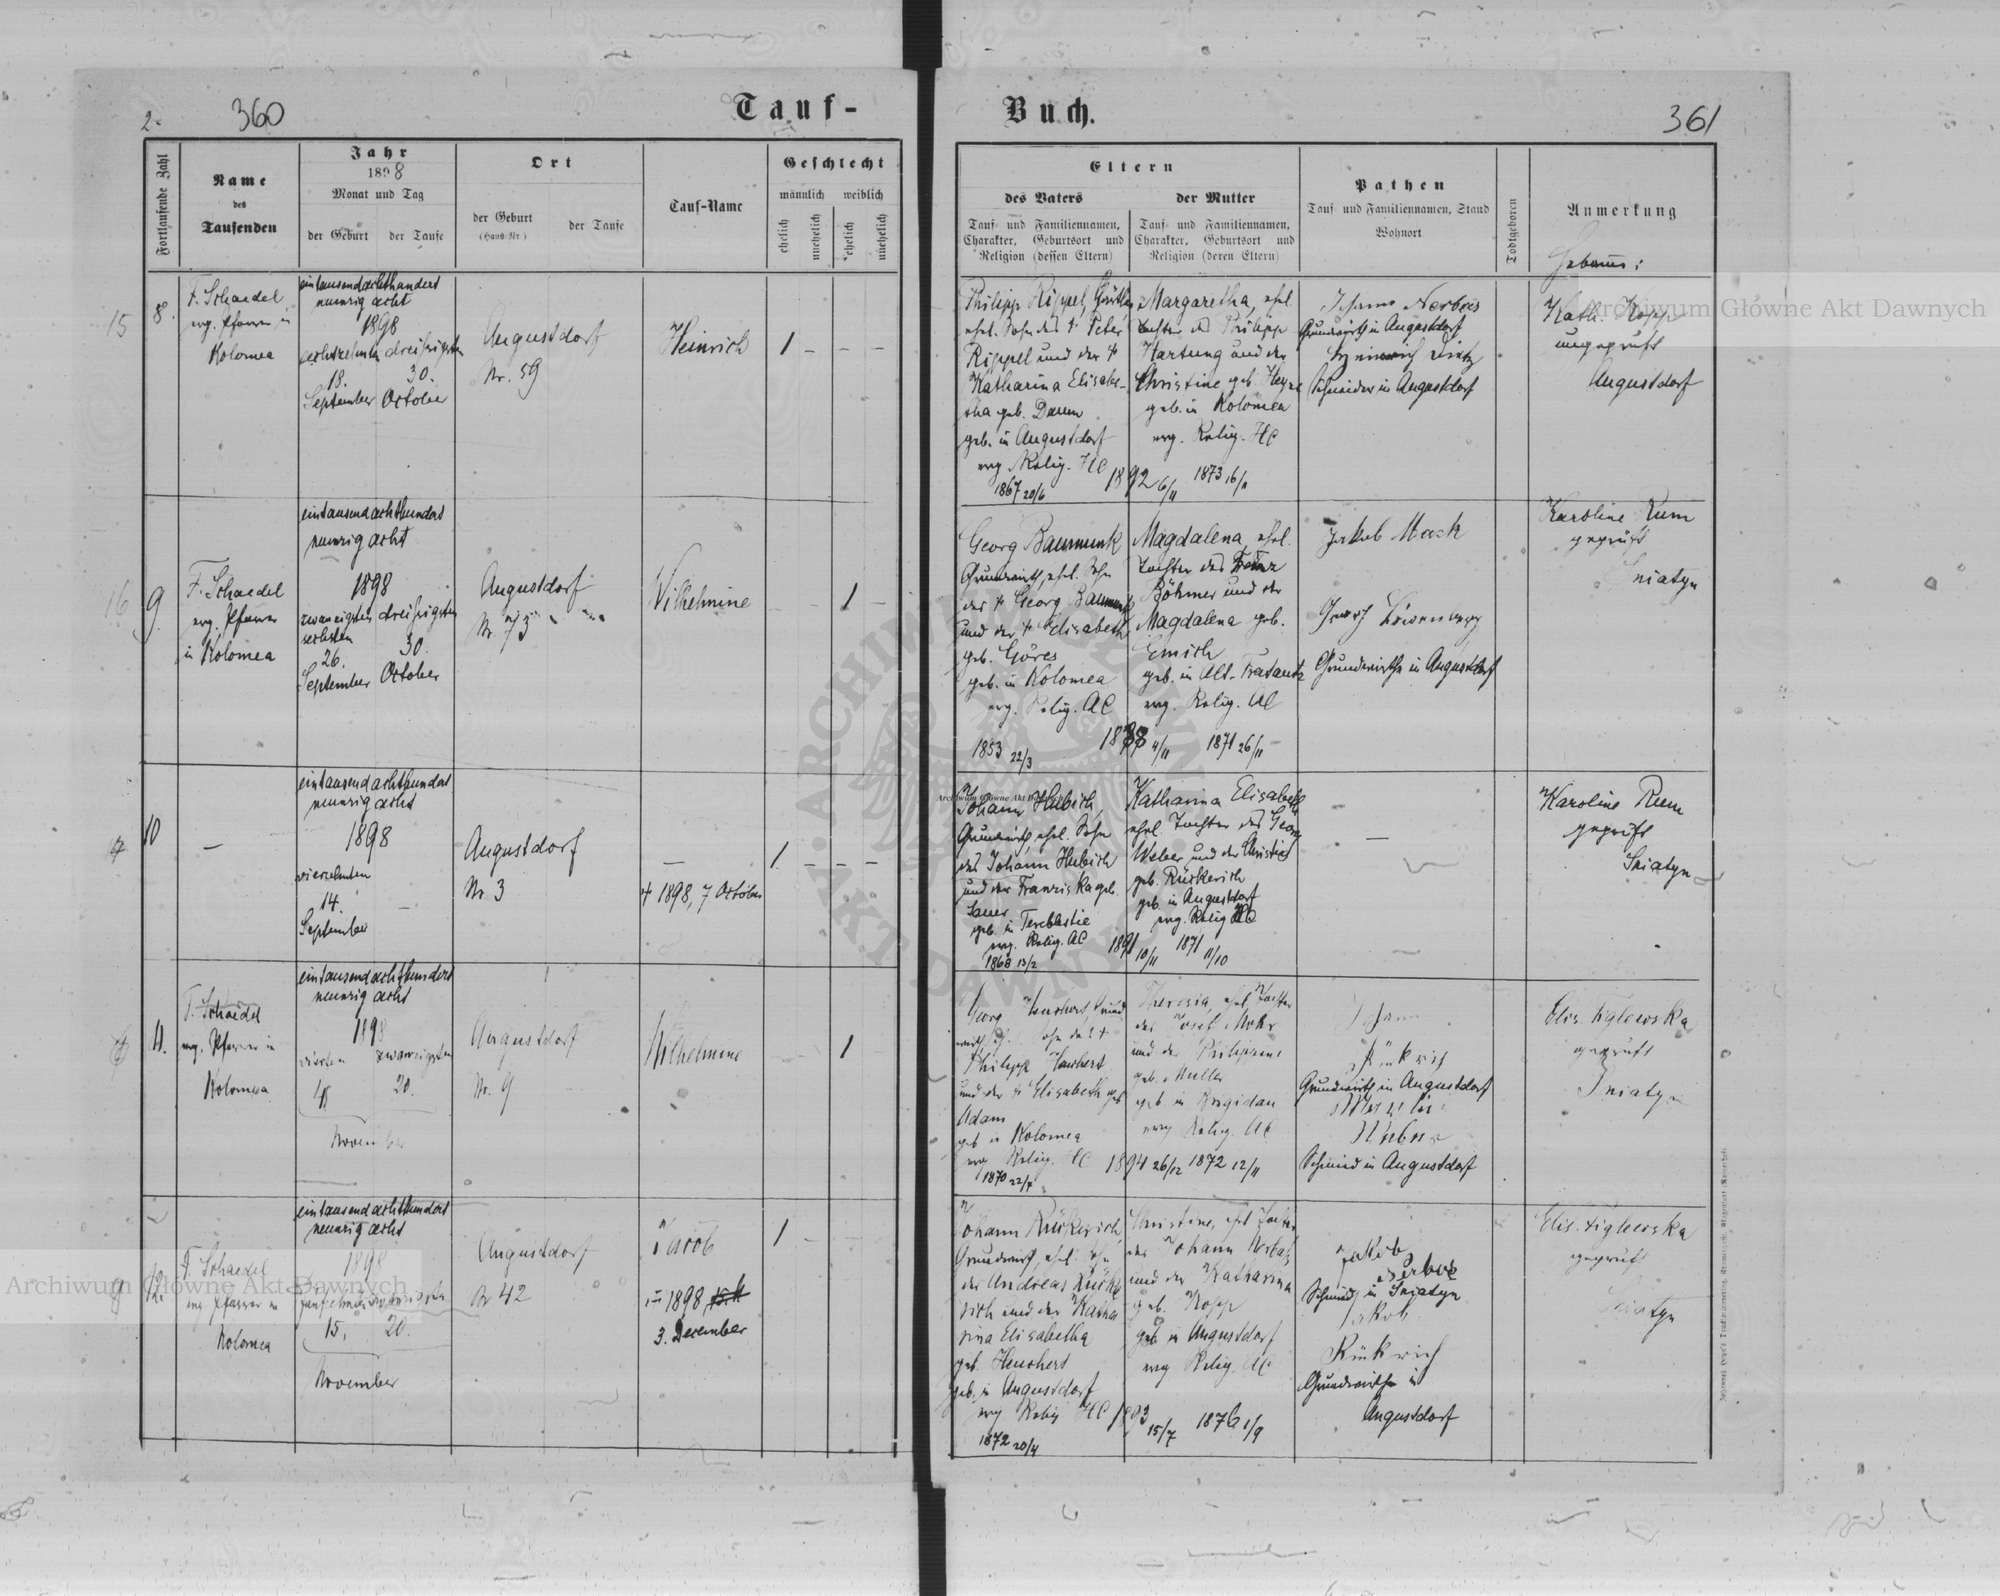 2.
360
Tauf-
Buch.
361
Fortlaufende Zahl
Name
des
Taufenden
Jahr
1898
Monat und Tag
der Geburt
der Taufe
Ort
der Geburt
(Haus-Nr.)
der Taufe
Tauf-Name
Geschlecht
männlich
weiblich
ehelich
unehelich
ehelich
unehelich
Eltern
des Vaters
Tauf- und Familiennamen,
Charakter, Geburtsort und
Religion (dessen Eltern)
der Mutter
Tauf- und Familiennamen,
Charakter, Geburtsort und
Religion (deren Eltern)
Pathen
Tauf- und Familiennamen, Stand
Wohnort
Todtgeboren
Anmerkung
15
8.
F. Schaedel
evg. Pfarrer in
Kolomea
eintausendachthundert
neunzig acht
1898
achtzehnten dreißigsten
18. 30.
September October
Augustdorf
Nr. 59
Heinrich
1 - - -
Philipp Rippel,
ehel. Sohn des † Peter
Rippel und der †
Katharina Elisabe-
tha geb. Daum
geb. in Augustdorf
evg. Relig. HC
1867 20/6
1892 6/11
Margaretha, ehel
Tochter des Philipp
Hartung und der
Christine geb.
geb. in Kolomea
evg. Relig. HC
1873 16/11
Johann
Grundwirth in Augustdorf
Heinrich Dietz
Schneider in Augustdorf
Kath. Kopp
ungeprüft
Augustdorf
16
9.
F. Schaedel
evg. Pfarrer
in Kolomea
eintausendachthundert
neunzig acht
1898
zwanzigsten dreißigsten
sechsten
26. 30.
September October
Augustdorf
Nr. 73
Wilhelmine
- - 1 -
Georg Baumunk
Grundwirth, ehel. Sohn
des † Georg Baumunk
und der † Elisabeth
geb. Göres
geb. in Kolomea
evg. Relig. AC
1853 22/3
4/11
Magdalena, ehel.
Tochter des
Böhmer und der
Magdalena geb.
Emich
geb. in Alt-Fratautz
evg. Relig. AC
1871 26/11
Jakob Mack
Grundwirthe in Augustdorf
Karoline Rum
geprüft
Sniatyn
10
-
eintausendachthundert
neunzig acht
1898
vierzehnten
14.
September
Augustdorf
Nr. 3
-
† 1898, 7 October
1 - - -
Johann Hubich,
Grundwirth, ehel. Sohn
des Johann Hubich
und der Franziska geb.
Sauer
geb. in Tereblestie
evg. Relig. AC
1868 13/2
1891 10/11
Katharina Elisabeth
ehel. Tochter des Georg
Weber und der Christine
geb. Rückerich
geb. in Augustdorf
evg. Relig HC
1871 11/10
-
Karoline Rum
geprüft
Sniatyn
11.
F. Schaedel
evg. Pfarrer in
Kolomea
eintausendachthundert
neunzig acht
1898
vierten zwanzigsten
4 20.
November
Augustdorf
Nr. 9
Wilhelmine
1
Georg
Philipp
und der † Elisabeth geb
Adam
geb in Kolomea
evg Relig. HC
1870 22/7
1894 26/12
Theresia, ehel Tochter
des Josef Mohr
und der Philippine
geb. Müller
geb in Brigidau
evg Relig. AC
1872 12/11
Johann
Rückrich
Grundwirth in Augustdorf
Schmied in Augustdorf
Elis. Figlewska
geprüft
Sniatyn
12.
F. Schaedel
evg. Pfarrer in
Kolomea
eintausendachthundert
neunzig acht
1898
fünfzehnten zwanzigsten
15. 20.
November
Augustdorf
Nr 42
Jacob
1898
3. December
1 -
Johann Rückerich,
Grundwirth, ehel. Sohn
des Andreas Rücke
rich und der Katha
rina Elisabetha
geb.
geb. in Augustdorf
evg Relig HC
1872 20/4
15/7
Christine, ehel Tochter
des Johann
und der Katharina
geb. Kopp
geb in Augustdorf
evg Relig. HC
1876 1/9
Jakob
Schmied in Sniatyn
Jakob
Rückrich
Grundwirthe in
Augustdorf
Elis. Figlewska
geprüft
Sniatyn
Archiwum Główne Akt Dawnych
Archiwum Główne Akt Dawnych
Archiwum Główne Akt Dawnych